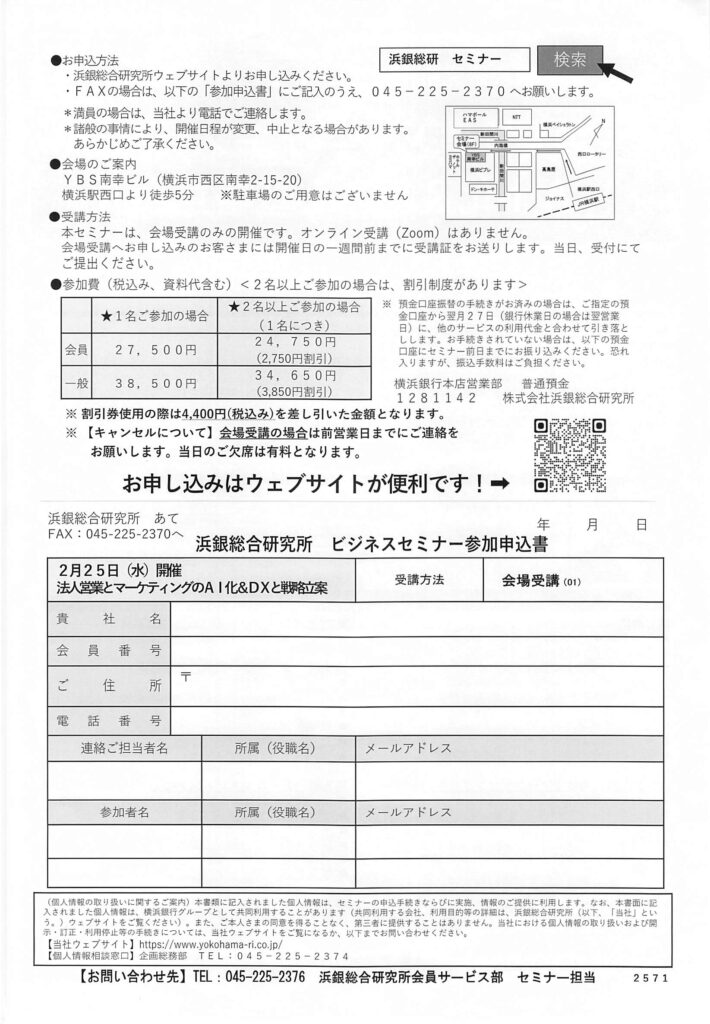 ●お申込方法
浜銀総研 セミナー 検索
・浜銀総合研究所ウェブサイトよりお申し込みください。
・FAXの場合は、以下の「参加申込書」にご記入のうえ、045-225-2370へお願いします。
＊満員の場合は、当社より電話でご連絡します。
＊諸般の事情により、開催日程が変更、中止となる場合があります。
あらかじめご了承ください。
●会場のご案内
YBS南幸ビル（横浜市西区南幸2-15-20）
横浜駅西口より徒歩5分 ※駐車場のご用意はございません
ハマボール
EAS
NTT
横浜ベイシェラトン
N
セミナー
会場(8F)
新田間川
内海橋
西口ロータリー
YBS
南幸ビル
横浜ビブレ
高島屋
ドン・キホーテ
ジョイナス
横浜駅西口
JR横浜駅
●受講方法
本セミナーは、会場受講のみの開催です。オンライン受講（Zoom）はありません。
会場受講へお申し込みのお客さまには開催日の一週間前までに受講証をお送りします。当日、受付にて
ご提出ください。
●参加費（税込み、資料代含む）＜2名以上ご参加の場合は、割引制度があります＞
★1名ご参加の場合 ★2名以上ご参加の場合
（1名につき）
会員 27,500円 24,750円
(2,750円割引)
一般 38,500円 34,650円
(3,850円割引)
※ 預金口座振替の手続きがお済みの場合は、ご指定の預
金口座から翌月27日（銀行休業日の場合は翌営業
日）に、他のサービスの利用代金と合わせて引き落と
しします。お手続きされていない場合は、以下の預金
口座にセミナー前日までにお振り込みください。恐れ
入りますが、振込手数料はご負担ください。
横浜銀行本店営業部 普通預金
1281142 株式会社浜銀総合研究所
※ 割引券使用の際は4,400円(税込み)を差し引いた金額となります。
※ 【キャンセルについて】会場受講の場合は前営業日までにご連絡を
お願いします。当日のご欠席は有料となります。
お申し込みはウェブサイトが便利です！➡
浜銀総合研究所 あて
FAX：045-225-2370へ
年 月 日
浜銀総合研究所 ビジネスセミナー参加申込書
2月25日（水）開催
法人営業とマーケティングのAI化&DXと戦略立案
受講方法 会場受講(01)
貴社名
会員番号
ご住所 〒
電話番号
連絡ご担当者名 所属（役職名） メールアドレス
参加者名 所属（役職名） メールアドレス
（個人情報の取り扱いに関するご案内）本書類に記入されました個人情報は、セミナーの申込手続きならびに実施、情報のご提供に利用します。なお、本書面に記
入されました個人情報は、横浜銀行グループとして共同利用することがあります（共同利用する会社、利用目的等の詳細は、浜銀総合研究所（以下、「当社」とい
う。）ウェブサイトをご覧ください）。また、ご本人さまの同意を得ることなく、第三者に提供することはありません。当社における個人情報の取り扱いおよび開
示・訂正・利用停止等の手続きについては、当社ウェブサイトをご覧になるか、以下までお問い合わせください。
【当社ウェブサイト】https://www.yokohama-ri.co.jp/
【個人情報相談窓口】企画総務部 TEL：045-225-2374
【お問い合わせ先】TEL：045-225-2376 浜銀総合研究所会員サービス部 セミナー担当 2571